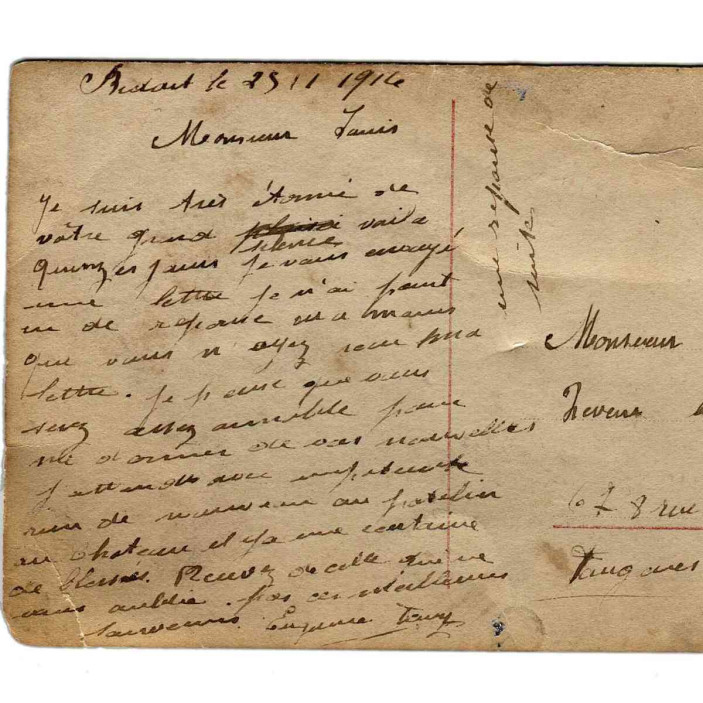 le 25 11 1914
Monsieur Louis
Je suis très étonné de
vôtre grand silence voila
quinzes jours je vous envoyé
une lettre je n'ai point
eu de reponse a moins
que vous n'ayez reçu ma
lettre. Je pense que vous
serez assez aimable pour
me donner de vos nouvelles
J'attends avec impatience
rien de nouveau au patelin
au chateau il y a une centaine
de blessés. Recevez de celle qui ne
vous oublie pas ces meilleurs
souvenirs. Eugenie
une reponse de
suite
Monsieur
67 8 rue